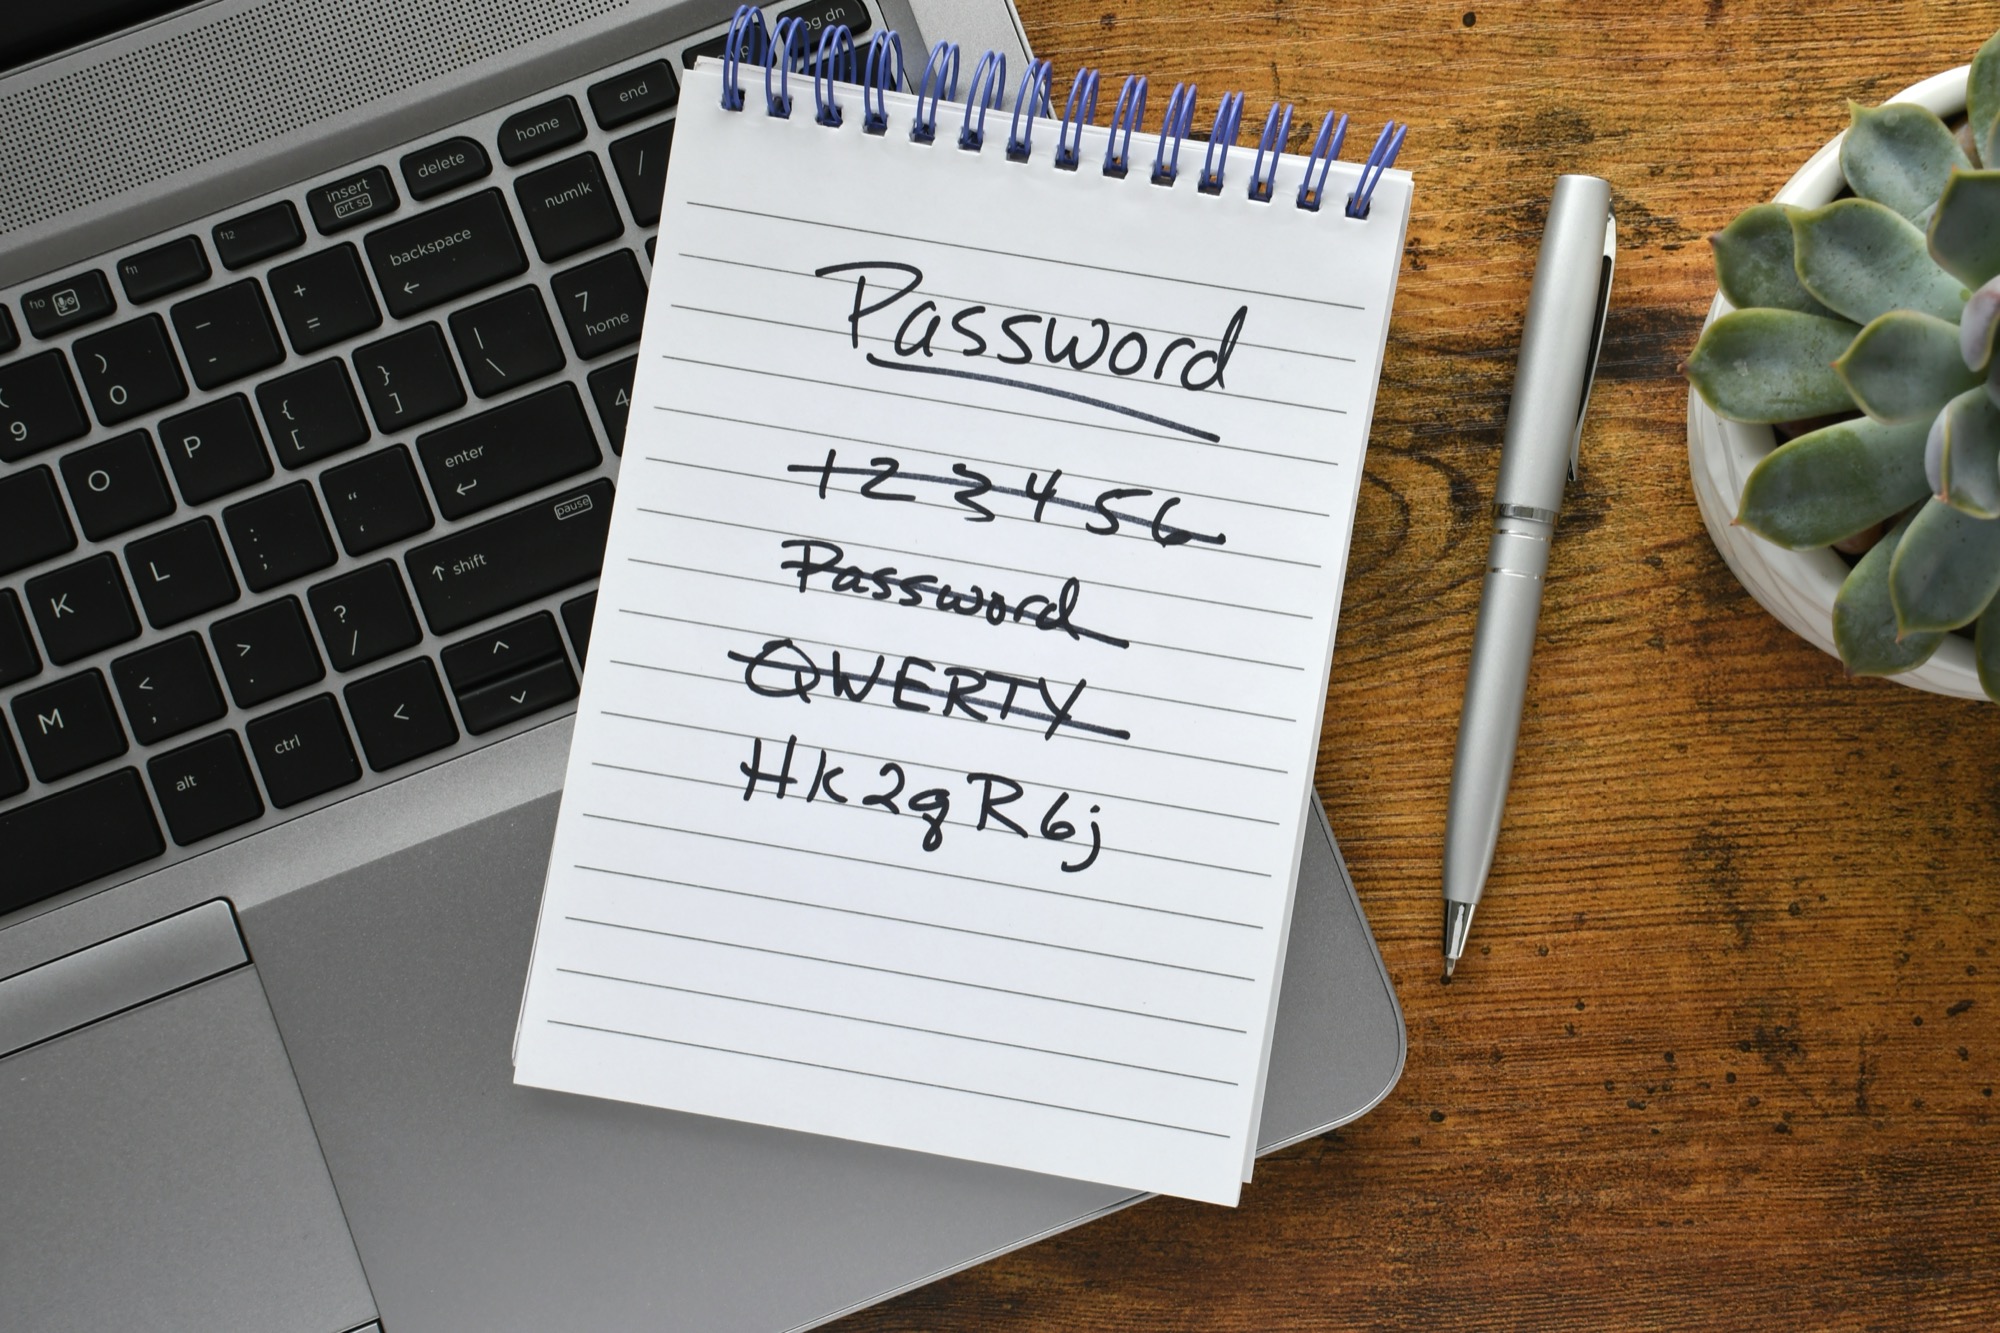 pg dn
end
home
delete
insert
prt sc
f12
f11
f10
/
numlk
backspace
←
+
=
_
-
)
0
(
9
7
home
|
\
}
]
{
[
P
O
4
enter
↵
"
'
:
;
L
K
pause
↑ shift
?
/
>
.
<
,
M
^
v
<
ctrl
alt
Password
123456
Password
QWERTY
Hk2gR6j